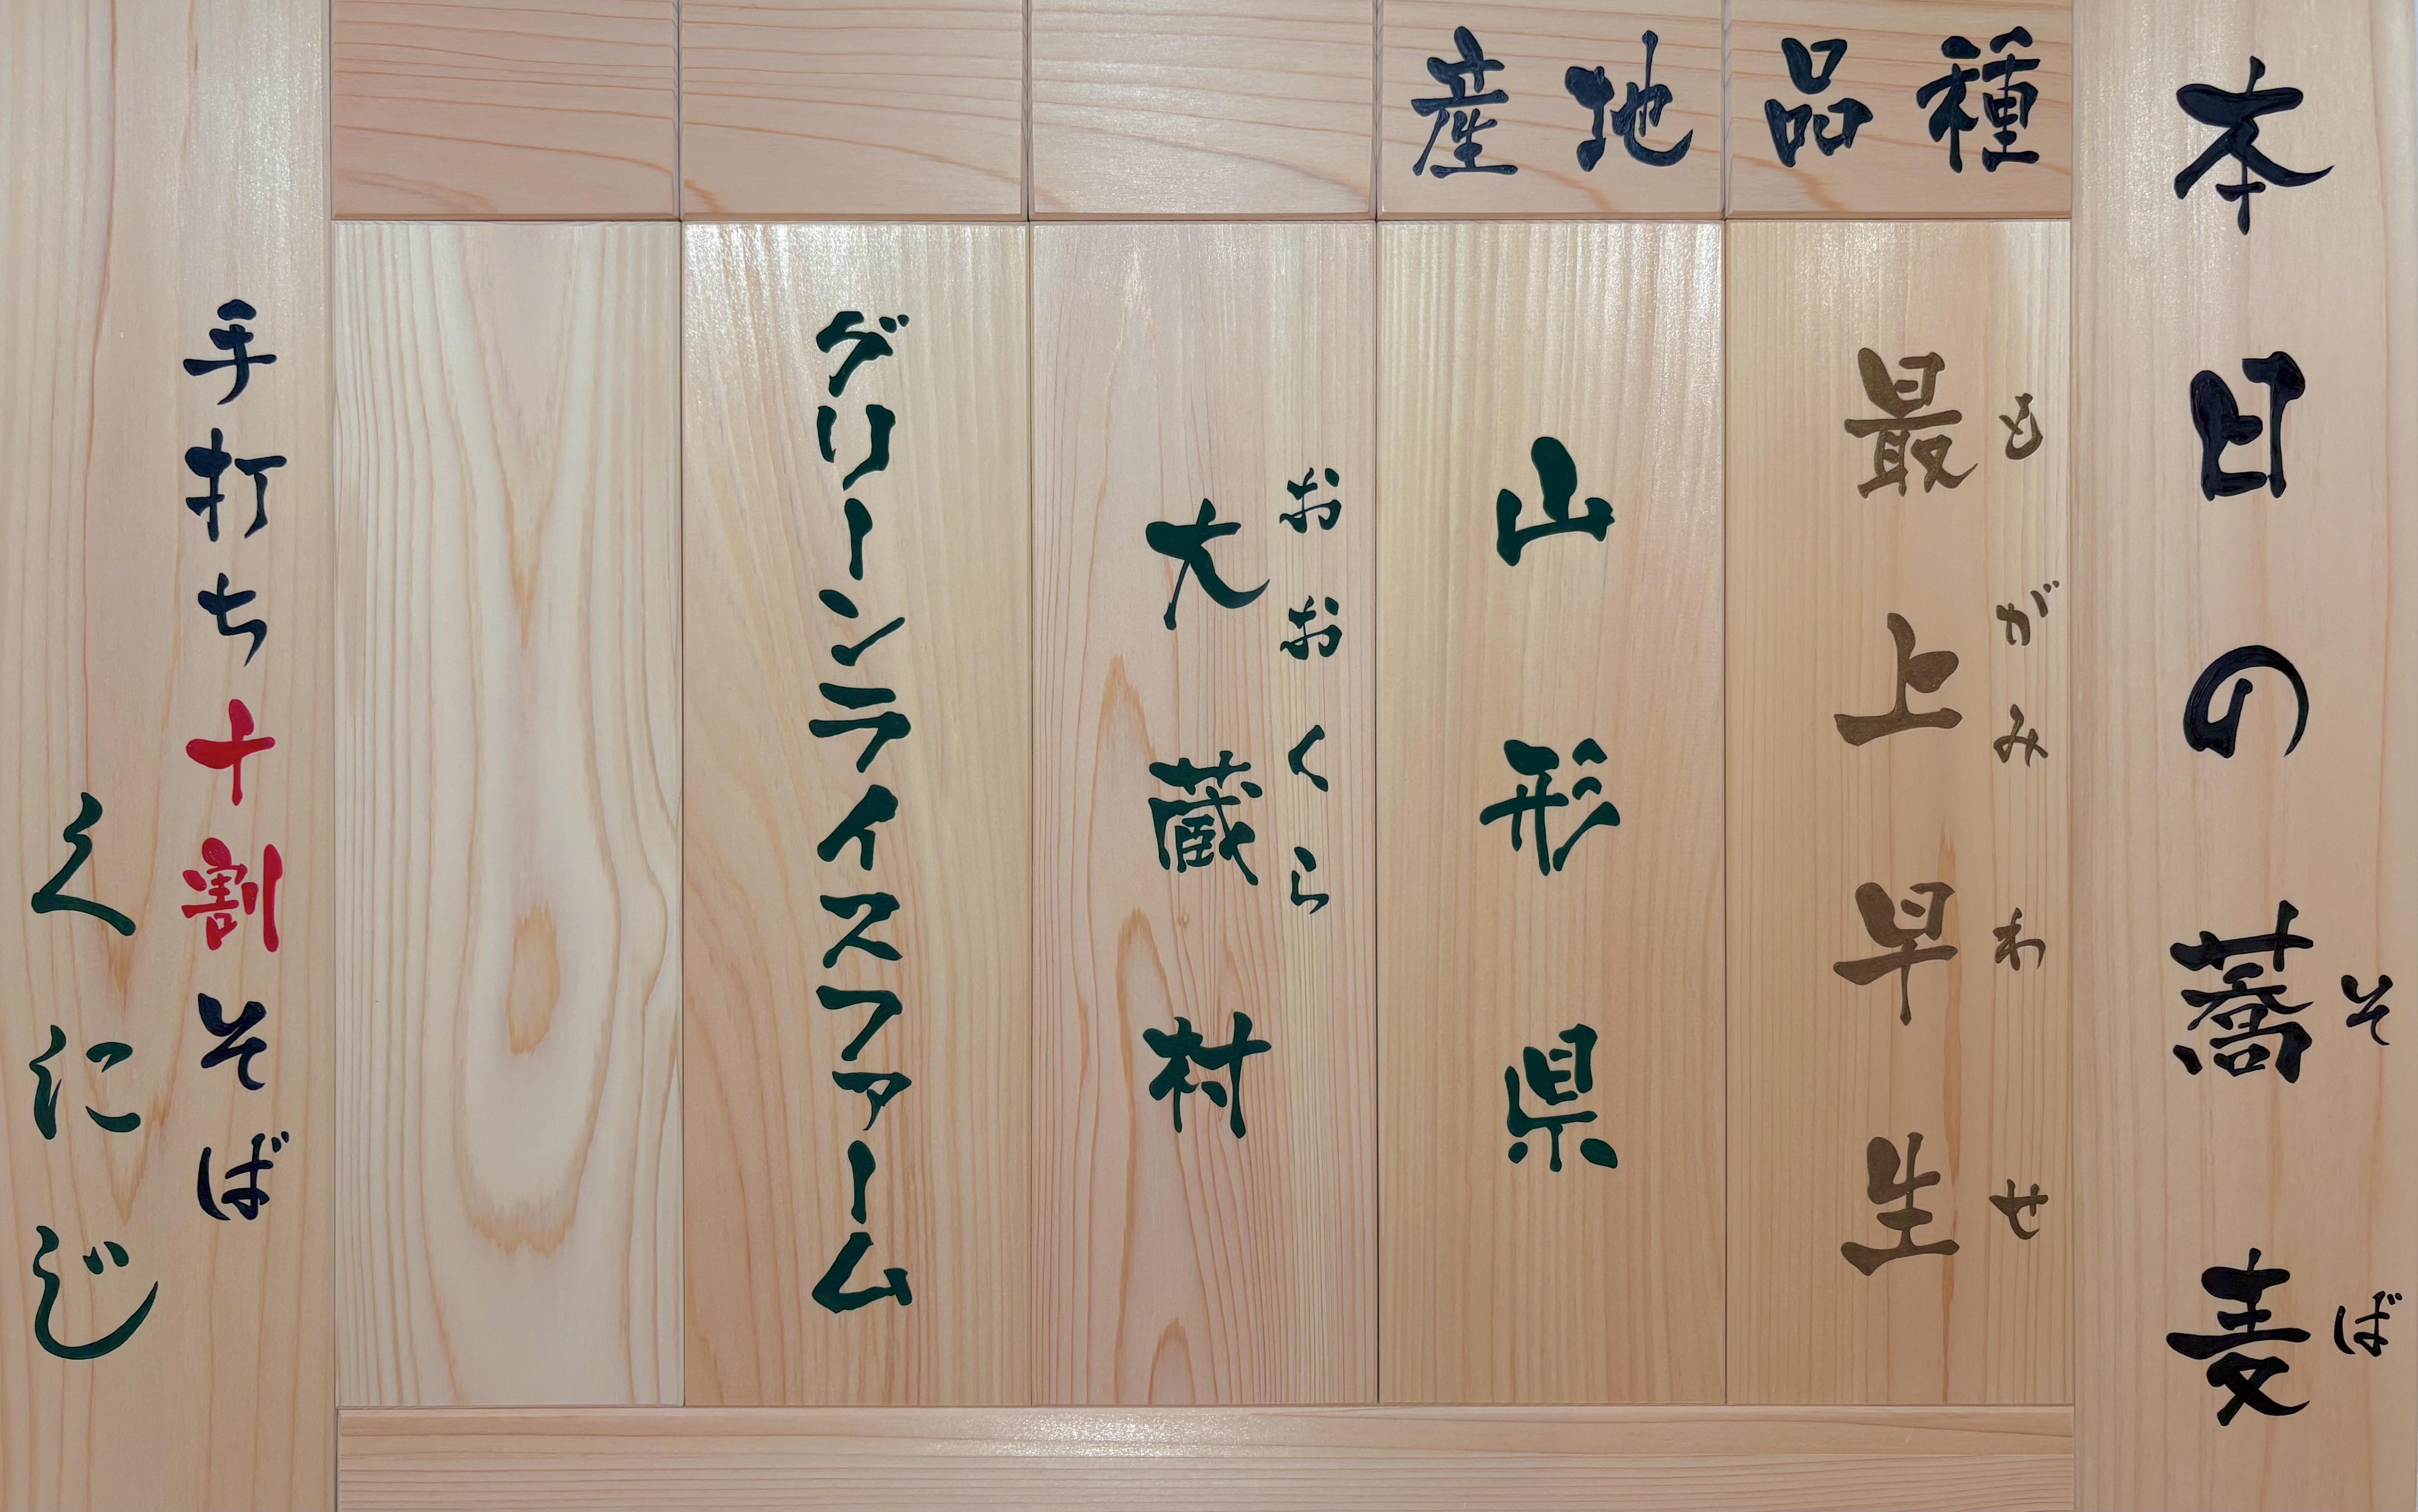 本日の蕎麦
そば
品種
最上早生
もがみわせ
産地
山形県
大蔵村
おおくら
グリーンライスファーム
手打ち十割そば
くにじ